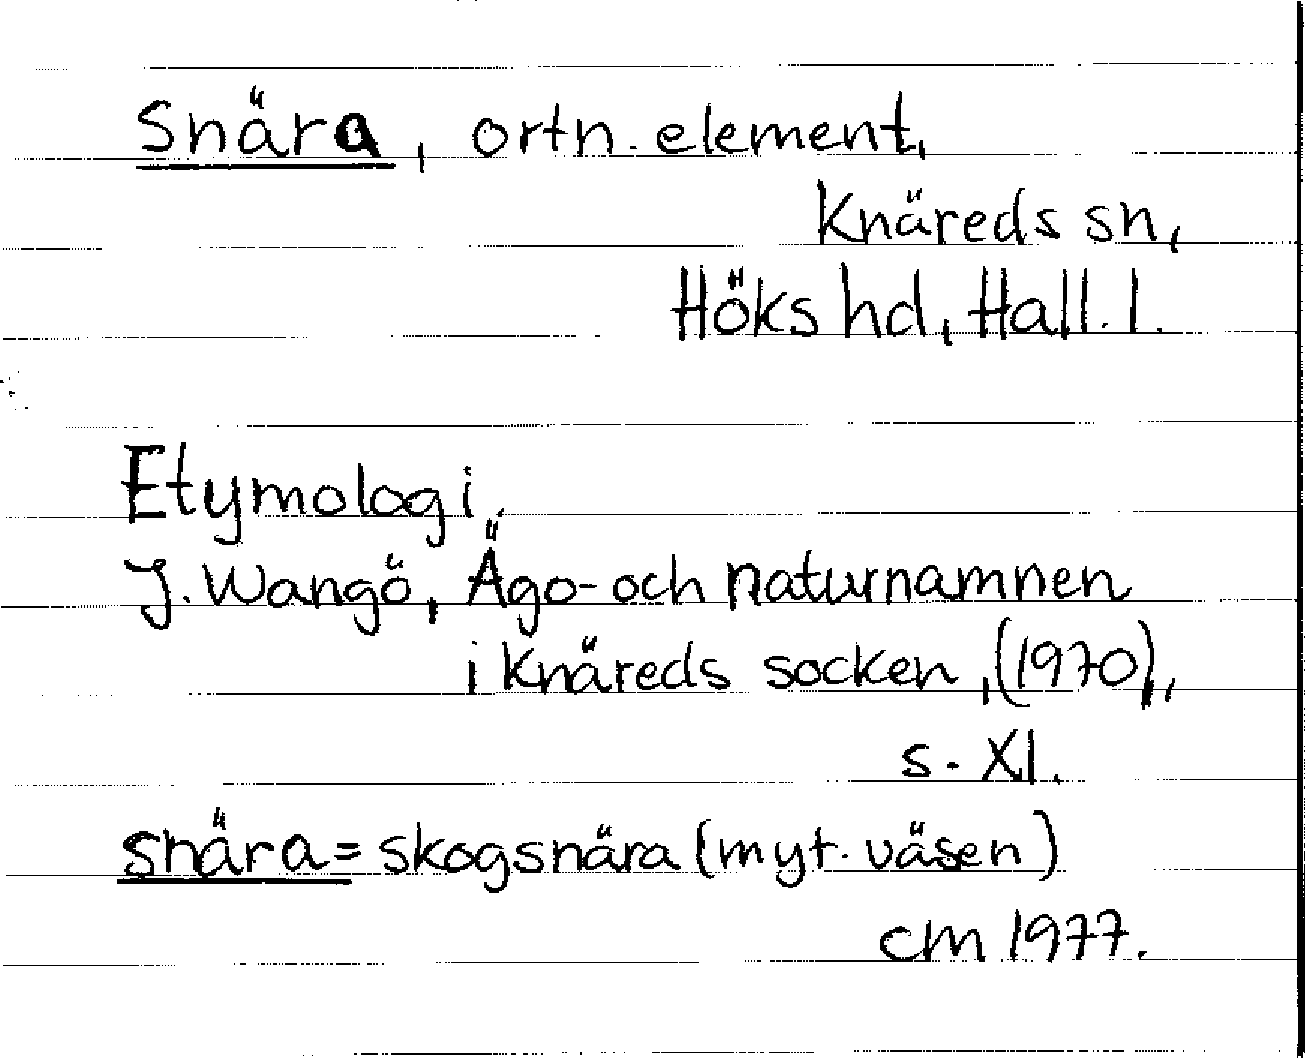 Snära, ortn. element,
Knäreds sn,
Höks hd, Hall. l.
Etymologi
J. Wangö, Ägo- och naturnamnen
i Knäreds socken, (1970),
s. XI.
snära = skogsnära (myt. väsen)
CM 1977.